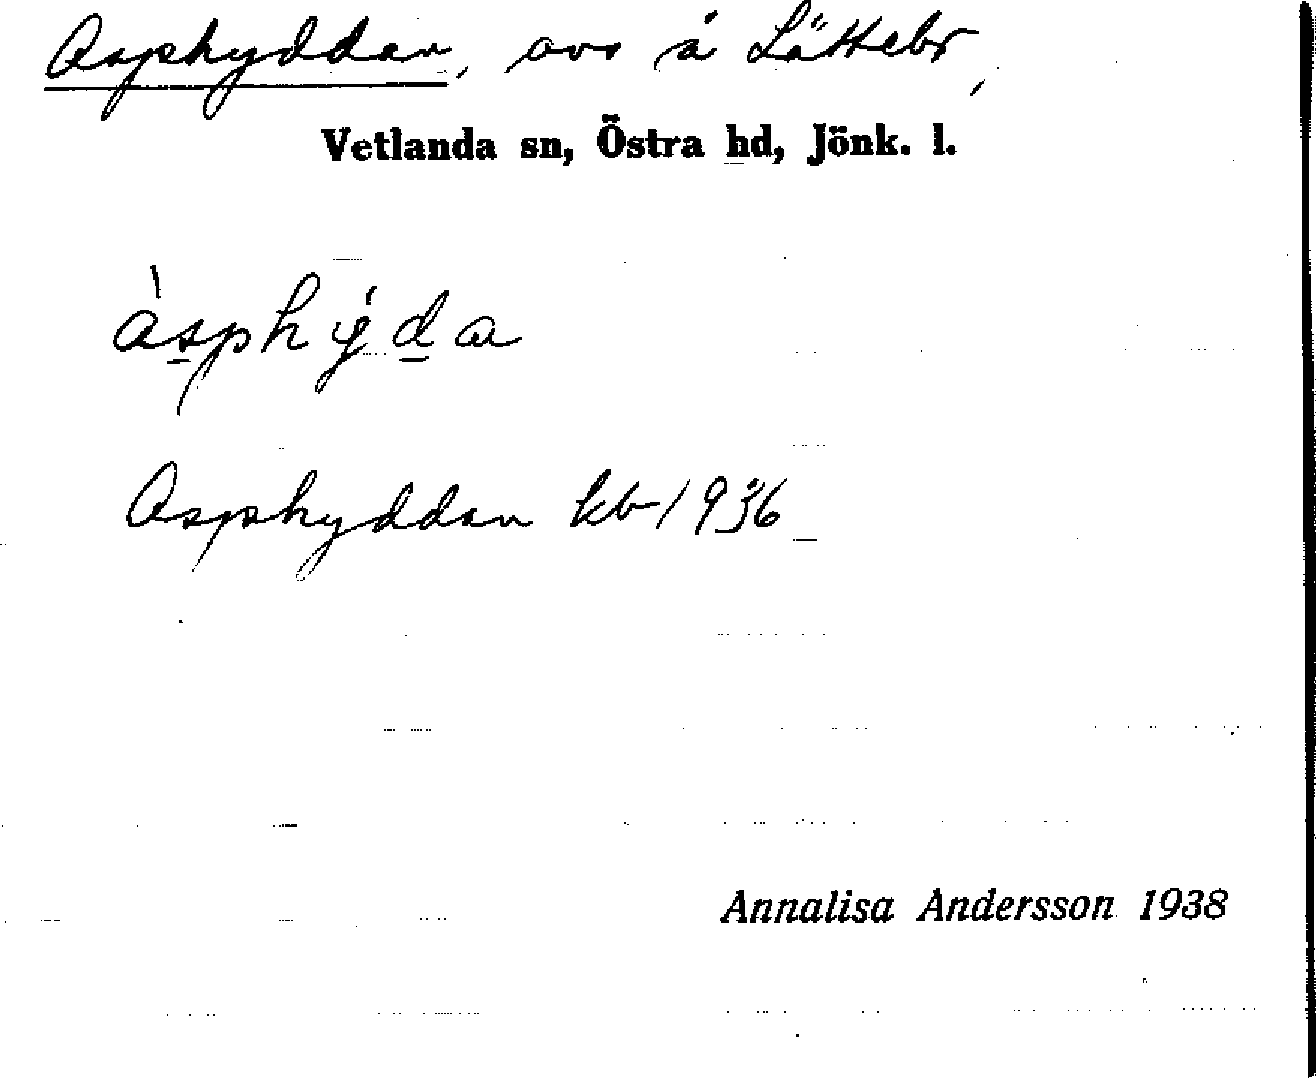 Asphyddan, avs å Lättebr,
Vetlanda sn, Östra hd, Jönk. l.
àsphýda
Asphyddan kb 1936
Annalisa Andersson 1938